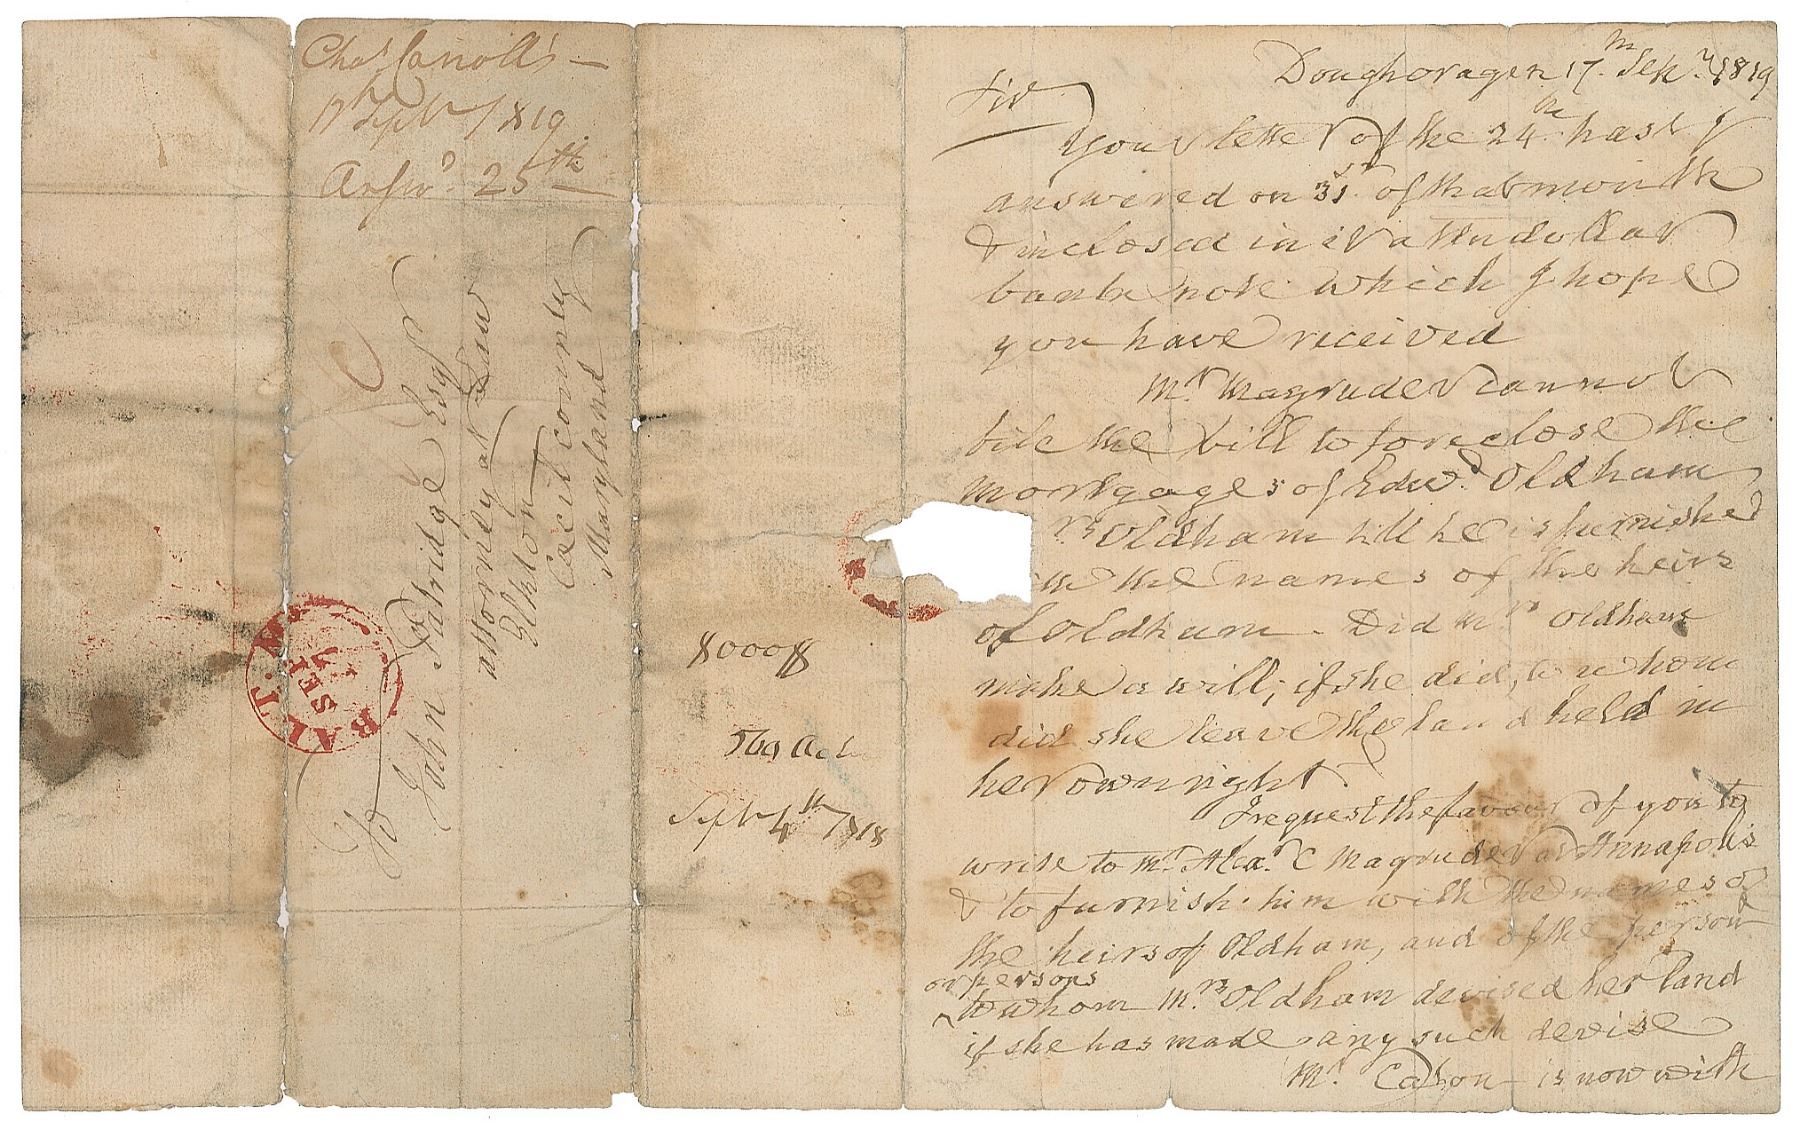 Chas Carroll's —
17th Septr 1819
Answd. 25th —
To
John Patridge Esqr
attorney at Law
Elkton
Cecil county
Maryland
BALT. MD.
SEP
17
8000
569 Acrs
Septr 4th 1818
Doughoragen 17th. Sepr. 1819
Sir
Your letter of the 24th. past I
answered on 31st of that month
& inclosed in it a ten dollar
bank note which I hope
you have received
Mr. Magruder cannot
file the bill to foreclose the
mortgages of Edwd. Oldham
rs Oldham till he is furnished
the names of the heirs
of Oldham. Did Mrs Oldham
make a will; if she did, to whom
did she leave the land held in
her own right?
I request the favour of you to
write to Mr. Alexr. C Magruder at Annapolis
& to furnish him with the names of
the heirs of Oldham, and of the person
or persons
to whom Mrs. Oldham devised her land
if she has made any such devise
Mr. Caton is now with